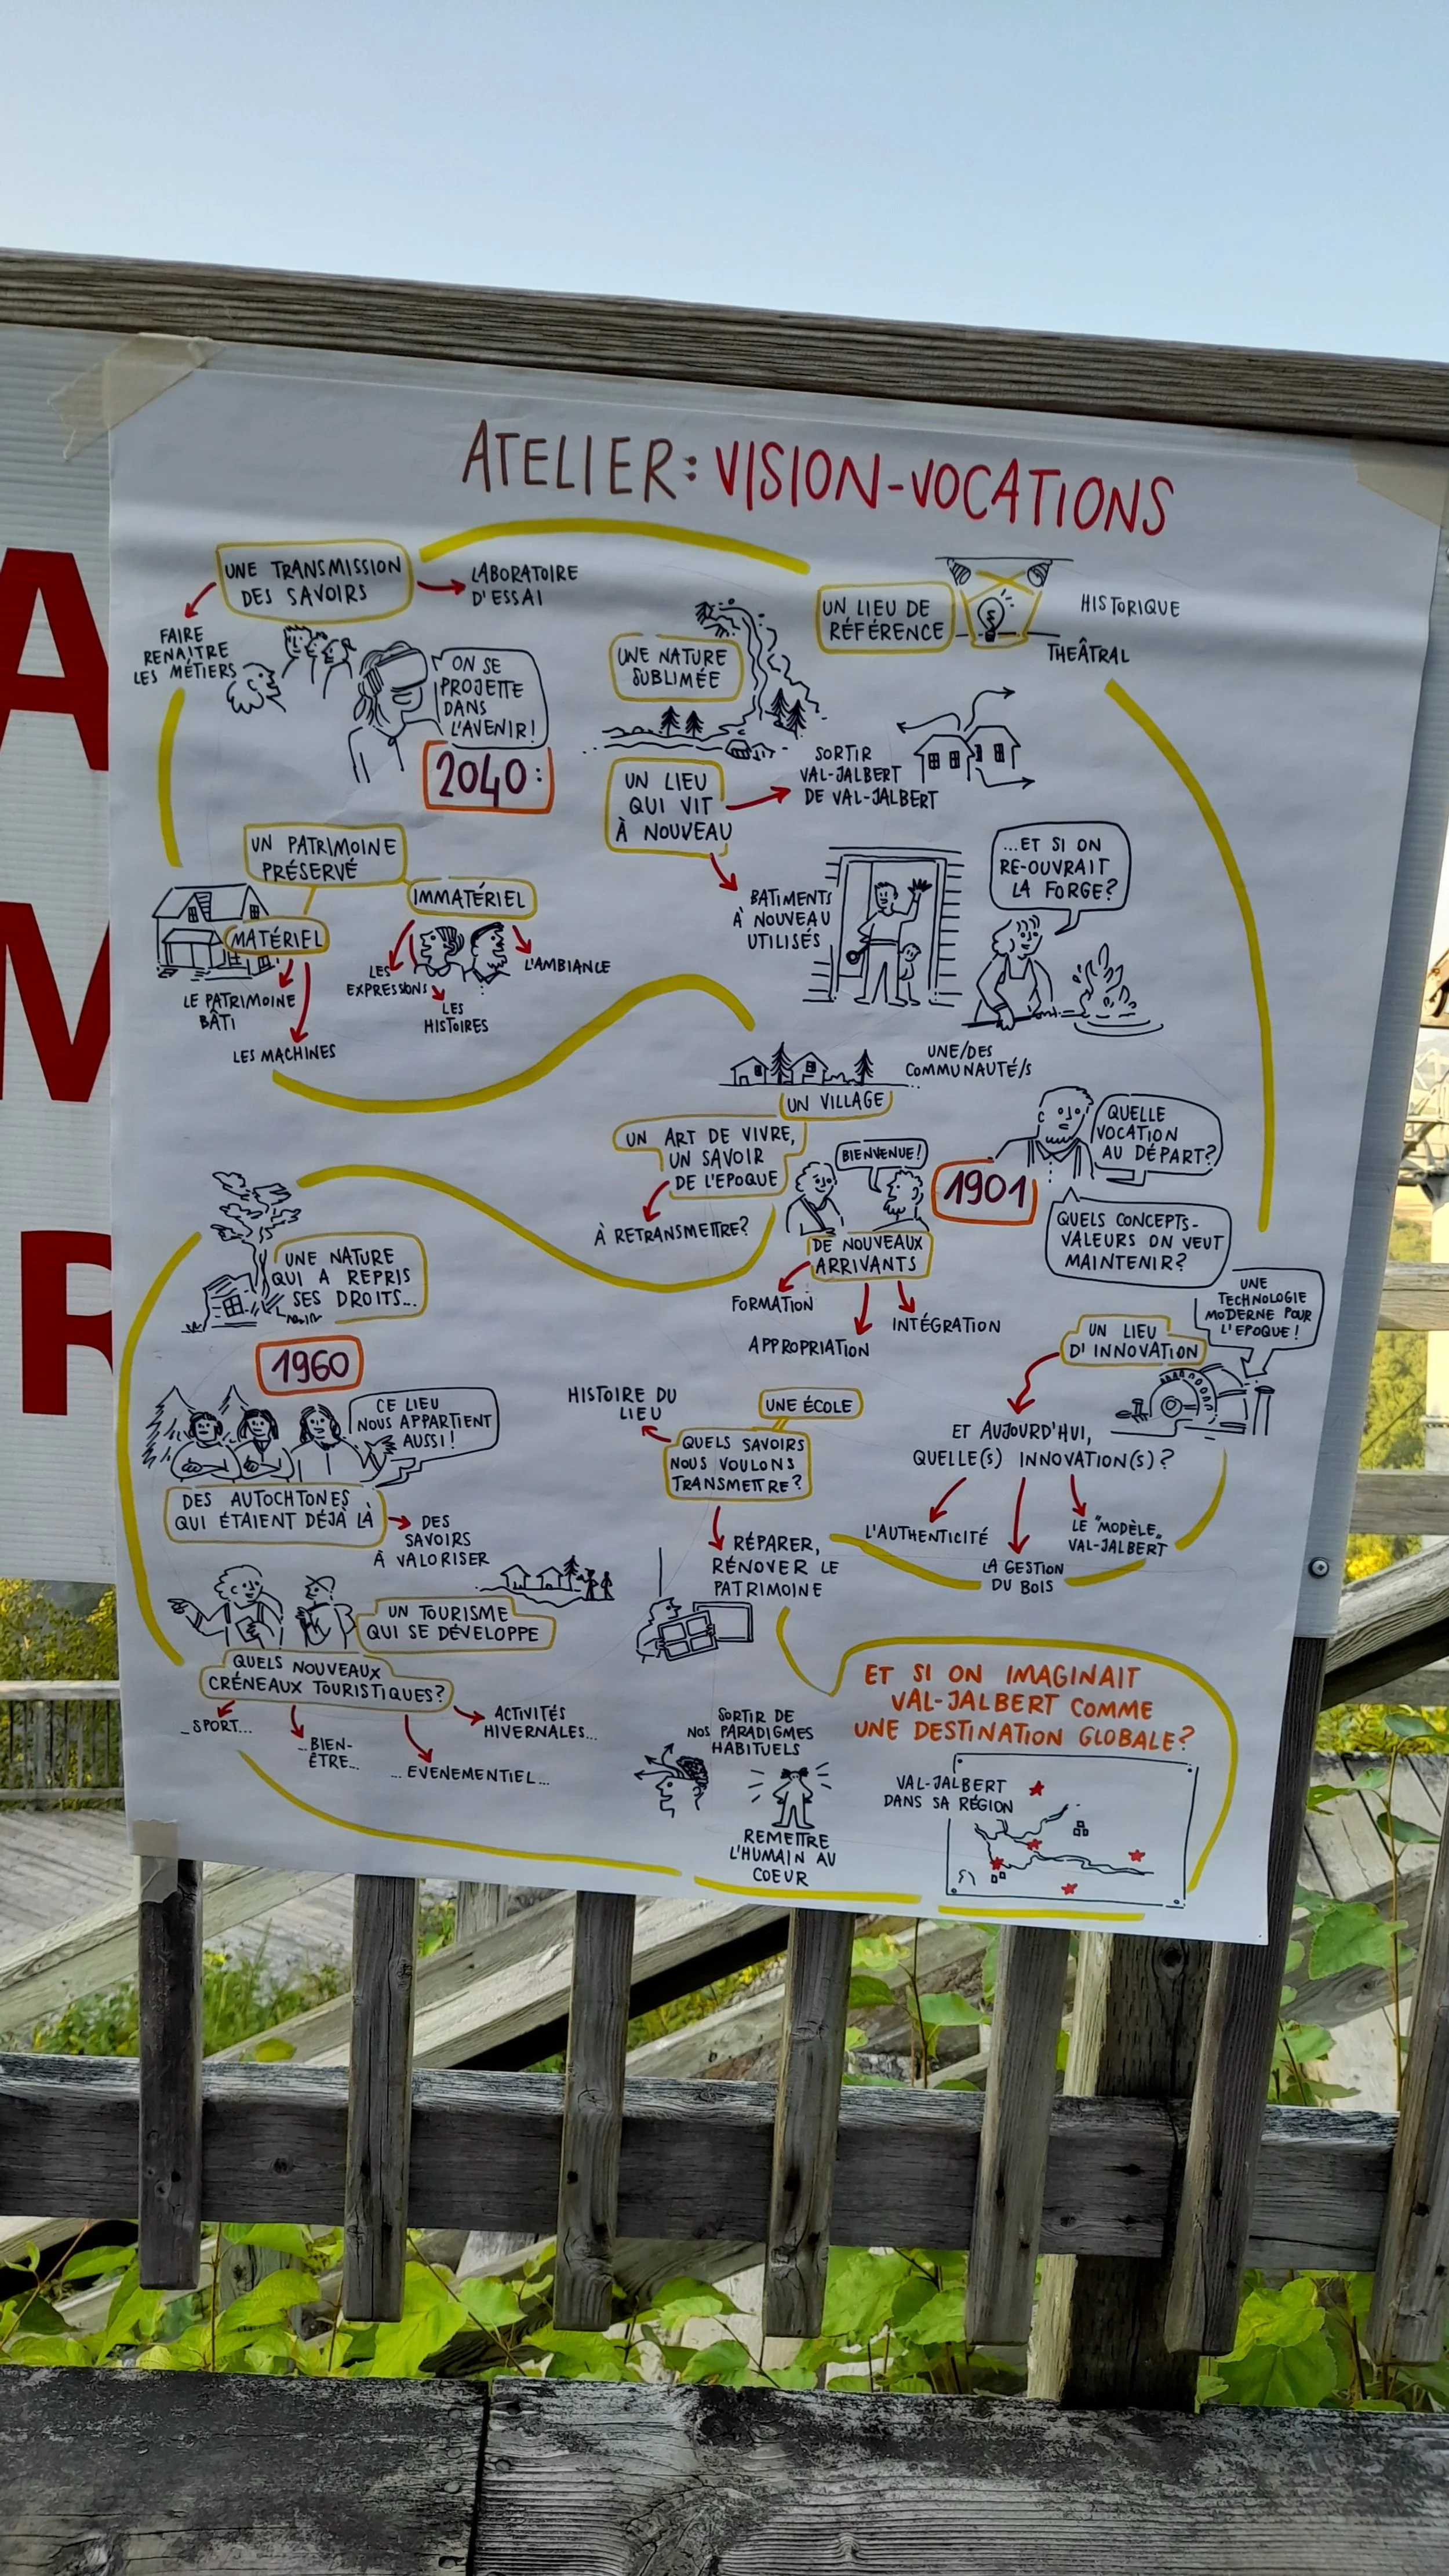 A
M
R
ATELIER: VISION-VOCATIONS
UNE TRANSMISSION
DES SAVOIRS
LABORATOIRE
D'ESSAI
FAIRE
RENAITRE
LES MÉTIERS
ON SE
PROJETTE
DANS
L'AVENIR!
2040:
UNE NATURE
SUBLIMÉE
UN LIEU DE
RÉFÉRENCE
HISTORIQUE
THEÂTRAL
UN LIEU
QUI VIT
À NOUVEAU
SORTIR
VAL-JALBERT
DE VAL-JALBERT
BATIMENTS
À NOUVEAU
UTILISÉS
...ET SI ON
RE-OUVRAIT
LA FORGE?
UN PATRIMOINE
PRÉSERVÉ
MATÉRIEL
LE PATRIMOINE
BÂTI
LES MACHINES
IMMATÉRIEL
LES
EXPRESSIONS
LES
HISTOIRES
L'AMBIANCE
UNE/DES
COMMUNAUTÉ/S
UN VILLAGE
UN ART DE VIVRE,
UN SAVOIR
DE L'EPOQUE
À RETRANSMETTRE?
BIENVENUE!
DE NOUVEAUX
ARRIVANTS
FORMATION
APPROPRIATION
INTÉGRATION
1901
QUELLE
VOCATION
AU DÉPART?
QUELS CONCEPTS-
VALEURS ON VEUT
MAINTENIR?
UNE
TECHNOLOGIE
MODERNE POUR
L'EPOQUE!
UN LIEU
D'INNOVATION
ET AUJOURD'HUI,
QUELLE(S) INNOVATION(S)?
L'AUTHENTICITÉ
LA GESTION
DU BOIS
LE "MODÈLE"
VAL-JALBERT
UNE NATURE
QUI A REPRIS
SES DROITS...
1960
CE LIEU
NOUS APPARTIENT
AUSSI!
DES AUTOCHTONES
QUI ÉTAIENT DÉJÀ LÀ
DES
SAVOIRS
À VALORISER
UN TOURISME
QUI SE DÉVELOPPE
QUELS NOUVEAUX
CRÉNEAUX TOURISTIQUES?
...SPORT...
...BIEN-
ÊTRE...
...EVENEMENTIEL...
ACTIVITÉS
HIVERNALES...
HISTOIRE DU
LIEU
UNE ÉCOLE
QUELS SAVOIRS
NOUS VOULONS
TRANSMETTRE?
RÉPARER,
RÉNOVER LE
PATRIMOINE
SORTIR DE
NOS PARADIGMES
HABITUELS
REMETTRE
L'HUMAIN AU
COEUR
ET SI ON IMAGINAIT
VAL-JALBERT COMME
UNE DESTINATION GLOBALE?
VAL-JALBERT
DANS SA RÉGION